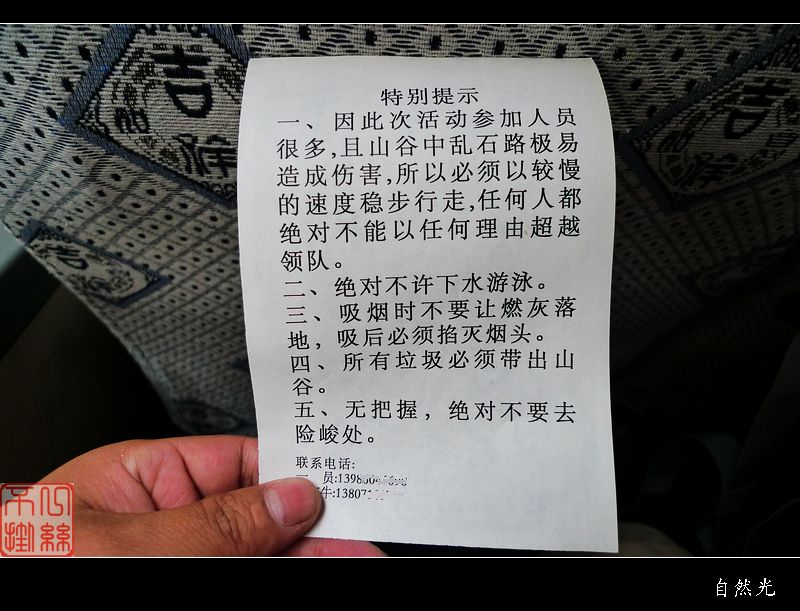 特别提示
一、因此次活动参加人员
很多,且山谷中乱石路极易
造成伤害,所以必须以较慢
的速度稳步行走,任何人都
绝对不能以任何理由超越
领队。
二、绝对不许下水游泳。
三、吸烟时不要让燃灰落
地，吸后必须掐灭烟头。
四、所有垃圾必须带出山
谷。
五、无把握，绝对不要去
险峻处。
联系电话:
员:1398
牛:13807
吉祥
吉祥
吉
自然光